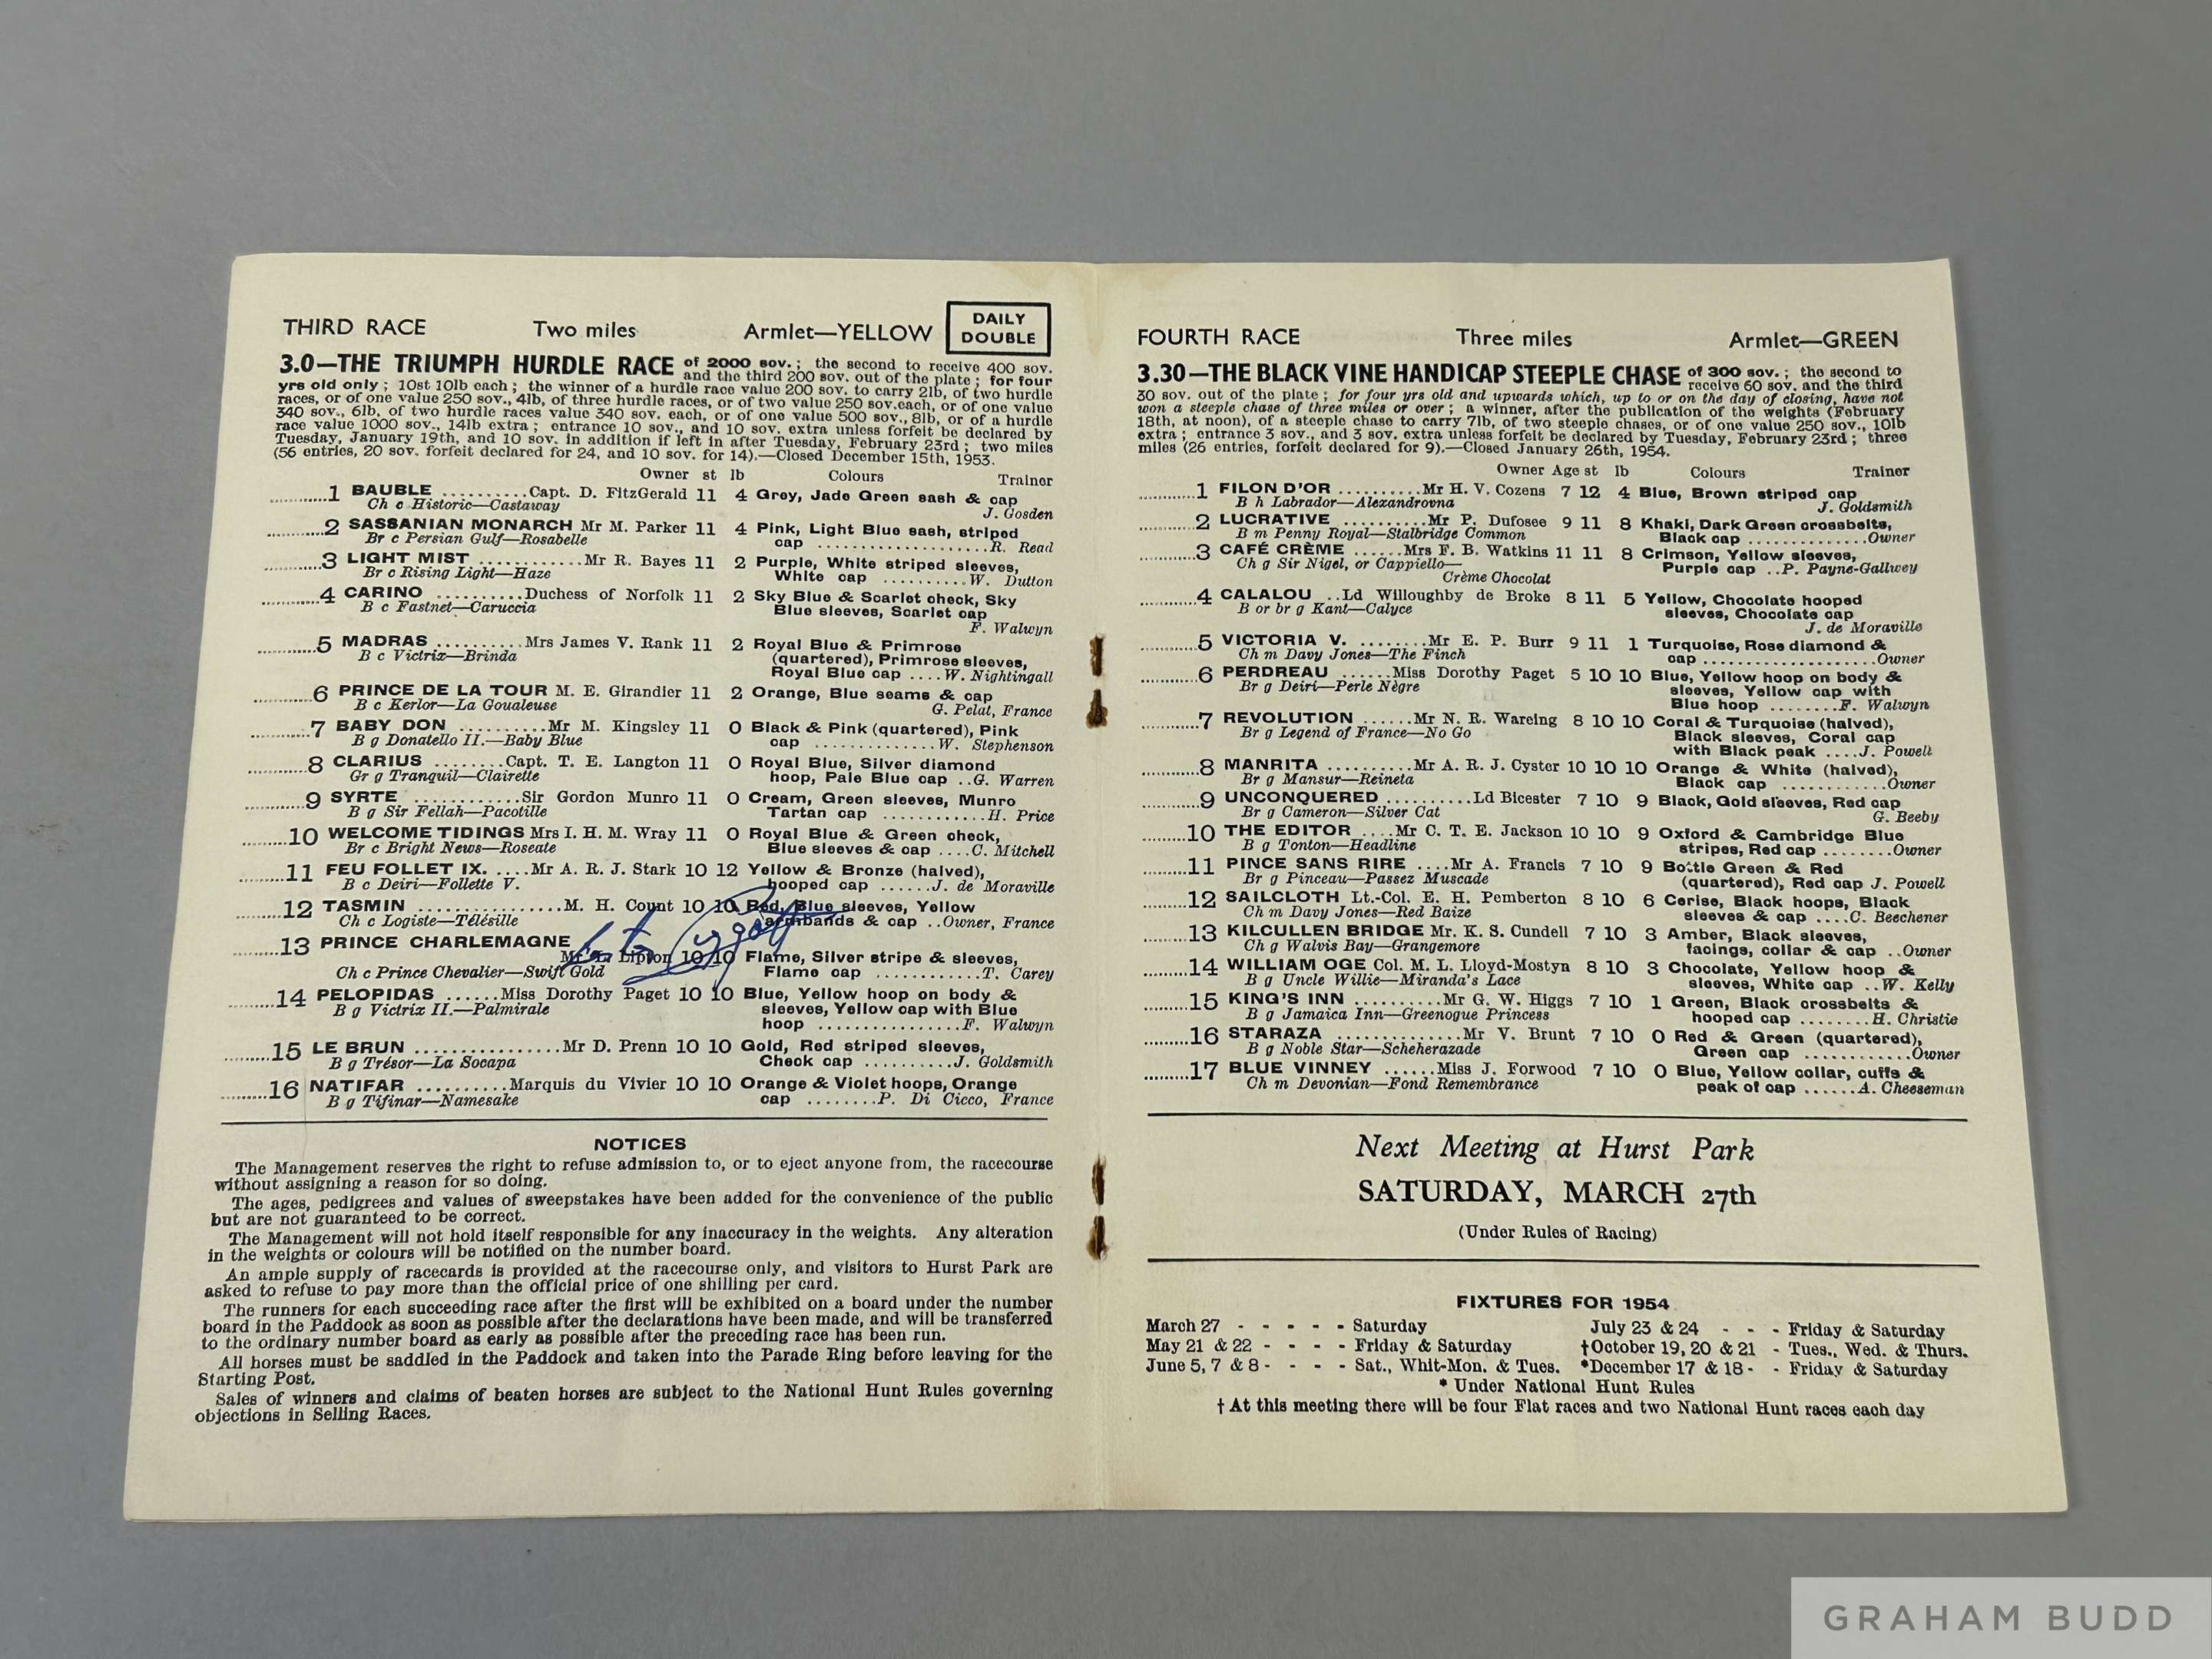 THIRD RACE Two miles Armlet—YELLOW DAILY DOUBLE
3.0—THE TRIUMPH HURDLE RACE of 2000 sov.; the second to receive 400 sov.
and the third 200 sov. out of the plate; for four
yrs old only; 10st 10lb each; the winner of a hurdle race value 200 sov. to carry 2lb, of two hurdle
races, or of one value 250 sov., 4lb, of three hurdle races, or of two value 250 sov.each, or of one value
340 sov., 6lb, of two hurdle races value 340 sov. each, or of one value 500 sov., 8lb, or of a hurdle
race value 1000 sov., 14lb extra; entrance 10 sov., and 10 sov. extra unless forfeit be declared by
Tuesday, January 19th, and 10 sov. in addition if left in after Tuesday, February 23rd; two miles
(56 entries, 20 sov. forfeit declared for 24, and 10 sov. for 14).—Closed December 15th, 1953.
Owner st lb Colours Trainer
1 BAUBLE ..........Capt. D. FitzGerald 11 4 Grey, Jade Green sash & cap
Ch c Historic—Castaway J. Gosden
2 SASSANIAN MONARCH Mr M. Parker 11 4 Pink, Light Blue sash, striped
Br c Persian Gulf—Rosabelle cap ....................R. Read
3 LIGHT MIST ............Mr R. Bayes 11 2 Purple, White striped sleeves,
Br c Rising Light—Haze White cap ..........W. Dutton
4 CARINO ..........Duchess of Norfolk 11 2 Sky Blue & Scarlet check, Sky
B c Fastnet—Caruccia Blue sleeves, Scarlet cap
F. Walwyn
5 MADRAS ..........Mrs James V. Rank 11 2 Royal Blue & Primrose
B c Victrix—Brinda (quartered), Primrose sleeves,
Royal Blue cap ....W. Nightingall
6 PRINCE DE LA TOUR M. E. Girandier 11 2 Orange, Blue seams & cap
B c Kerlor—La Goualeuse G. Pelat, France
7 BABY DON ..........Mr M. Kingsley 11 0 Black & Pink (quartered), Pink
B g Donatello II.—Baby Blue cap ..............W. Stephenson
8 CLARIUS ........Capt. T. E. Langton 11 0 Royal Blue, Silver diamond
Gr g Tranquil—Clairette hoop, Pale Blue cap ..G. Warren
9 SYRTE ............Sir Gordon Munro 11 0 Cream, Green sleeves, Munro
B g Sir Fellah—Pacotille Tartan cap ............H. Price
10 WELCOME TIDINGS Mrs I. H. M. Wray 11 0 Royal Blue & Green check,
Br c Bright News—Roseate Blue sleeves & cap ....C. Mitchell
11 FEU FOLLET IX. ....Mr A. R. J. Stark 10 12 Yellow & Bronze (halved),
B c Deiri—Follette V. hooped cap ......J. de Moraville
12 TASMIN ................M. H. Count 10 10 Red, Blue sleeves, Yellow
Ch c Logiste—Télésille armbands & cap ..Owner, France
13 PRINCE CHARLEMAGNE
Lipton 10 10 Flame, Silver stripe & sleeves,
Ch c Prince Chevalier—Swift Gold Flame cap ............T. Carey
Lester Piggott
14 PELOPIDAS ......Miss Dorothy Paget 10 10 Blue, Yellow hoop on body &
B g Victrix II.—Palmirale sleeves, Yellow cap with Blue
hoop ................F. Walwyn
15 LE BRUN ................Mr D. Prenn 10 10 Gold, Red striped sleeves,
B g Trésor—La Socapa Check cap ..........J. Goldsmith
16 NATIFAR ..........Marquis du Vivier 10 10 Orange & Violet hoops, Orange
B g Tifinar—Namesake cap ........P. Di Cicco, France
NOTICES
The Management reserves the right to refuse admission to, or to eject anyone from, the racecourse
without assigning a reason for so doing.
The ages, pedigrees and values of sweepstakes have been added for the convenience of the public
but are not guaranteed to be correct.
The Management will not hold itself responsible for any inaccuracy in the weights. Any alteration
in the weights or colours will be notified on the number board.
An ample supply of racecards is provided at the racecourse only, and visitors to Hurst Park are
asked to refuse to pay more than the official price of one shilling per card.
The runners for each succeeding race after the first will be exhibited on a board under the number
board in the Paddock as soon as possible after the declarations have been made, and will be transferred
to the ordinary number board as early as possible after the preceding race has been run.
All horses must be saddled in the Paddock and taken into the Parade Ring before leaving for the
Starting Post.
Sales of winners and claims of beaten horses are subject to the National Hunt Rules governing
objections in Selling Races.
FOURTH RACE Three miles Armlet—GREEN
3.30—THE BLACK VINE HANDICAP STEEPLE CHASE of 300 sov.; the second to
receive 60 sov. and the third
30 sov. out of the plate; for four yrs old and upwards which, up to or on the day of closing, have not
won a steeple chase of three miles or over; a winner, after the publication of the weights (February
18th, at noon), of a steeple chase to carry 7lb, of two steeple chases, or of one value 250 sov., 10lb
extra; entrance 3 sov., and 3 sov. extra unless forfeit be declared by Tuesday, February 23rd; three
miles (26 entries, forfeit declared for 9).—Closed January 26th, 1954.
Owner Age st lb Colours Trainer
1 FILON D'OR ..........Mr H. V. Cozens 7 12 4 Blue, Brown striped cap
B h Labrador—Alexandrovna J. Goldsmith
2 LUCRATIVE ..........Mr P. Dufosee 9 11 8 Khaki, Dark Green crossbelts,
B m Penny Royal—Stalbridge Common Black cap ..............Owner
3 CAFÉ CRÈME ......Mrs F. B. Watkins 11 11 8 Crimson, Yellow sleeves,
Ch g Sir Nigel, or Cappiello— Purple cap ..P. Payne-Gallwey
Crème Chocolat
4 CALALOU ..Ld Willoughby de Broke 8 11 5 Yellow, Chocolate hooped
B or br g Kant—Calyce sleeves, Chocolate cap
J. de Moraville
5 VICTORIA V. ........Mr E. P. Burr 9 11 1 Turquoise, Rose diamond &
Ch m Davy Jones—The Finch cap ....................Owner
6 PERDREAU ......Miss Dorothy Paget 5 10 10 Blue, Yellow hoop on body &
Br g Deiri—Perle Nègre sleeves, Yellow cap with
Blue hoop ........F. Walwyn
7 REVOLUTION ......Mr N. R. Wareing 8 10 10 Coral & Turquoise (halved),
Br g Legend of France—No Go Black sleeves, Coral cap
with Black peak ....J. Powell
8 MANRITA ..........Mr A. R. J. Cyster 10 10 10 Orange & White (halved),
Br g Mansur—Reineta Black cap ............Owner
9 UNCONQUERED ..........Ld Bicester 7 10 9 Black, Gold sleeves, Red cap
Br g Cameron—Silver Cat G. Beeby
10 THE EDITOR ....Mr C. T. E. Jackson 10 10 9 Oxford & Cambridge Blue
B g Tonton—Headline stripes, Red cap ........Owner
11 PINCE SANS RIRE ....Mr A. Francis 7 10 9 Bottle Green & Red
Br g Pinceau—Passez Muscade (quartered), Red cap J. Powell
12 SAILCLOTH Lt.-Col. E. H. Pemberton 8 10 6 Cerise, Black hoops, Black
Ch m Davy Jones—Red Baize sleeves & cap ....C. Beechener
13 KILCULLEN BRIDGE Mr. K. S. Cundell 7 10 3 Amber, Black sleeves,
Ch g Walvis Bay—Grangemore facings, collar & cap ..Owner
14 WILLIAM OGE Col. M. L. Lloyd-Mostyn 8 10 3 Chocolate, Yellow hoop &
B g Uncle Willie—Miranda's Lace sleeves, White cap ..W. Kelly
15 KING'S INN ..........Mr G. W. Higgs 7 10 1 Green, Black crossbelts &
B g Jamaica Inn—Greenogue Princess hooped cap ........H. Christie
16 STARAZA ..............Mr V. Brunt 7 10 0 Red & Green (quartered),
B g Noble Star—Scheherazade Green cap ............Owner
17 BLUE VINNEY ......Miss J. Forwood 7 10 0 Blue, Yellow collar, cuffs &
Ch m Devonian—Fond Remembrance peak of cap ......A. Cheeseman
Next Meeting at Hurst Park
SATURDAY, MARCH 27th
(Under Rules of Racing)
FIXTURES FOR 1954
March 27 - - - - - Saturday July 23 & 24 - - - Friday & Saturday
May 21 & 22 - - - - Friday & Saturday †October 19, 20 & 21 - Tues., Wed. & Thurs.
June 5, 7 & 8 - - - - Sat., Whit-Mon. & Tues. *December 17 & 18 - - Friday & Saturday
* Under National Hunt Rules
† At this meeting there will be four Flat races and two National Hunt races each day
GRAHAM BUDD